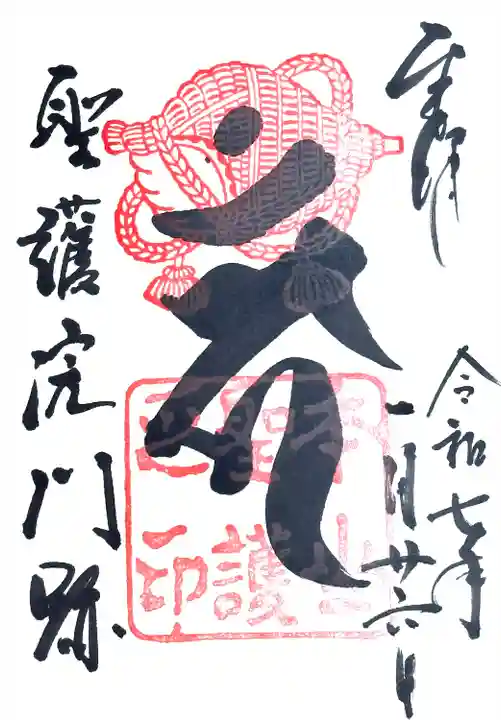 奉拝
令和七年
一月廿六日
聖護院門跡